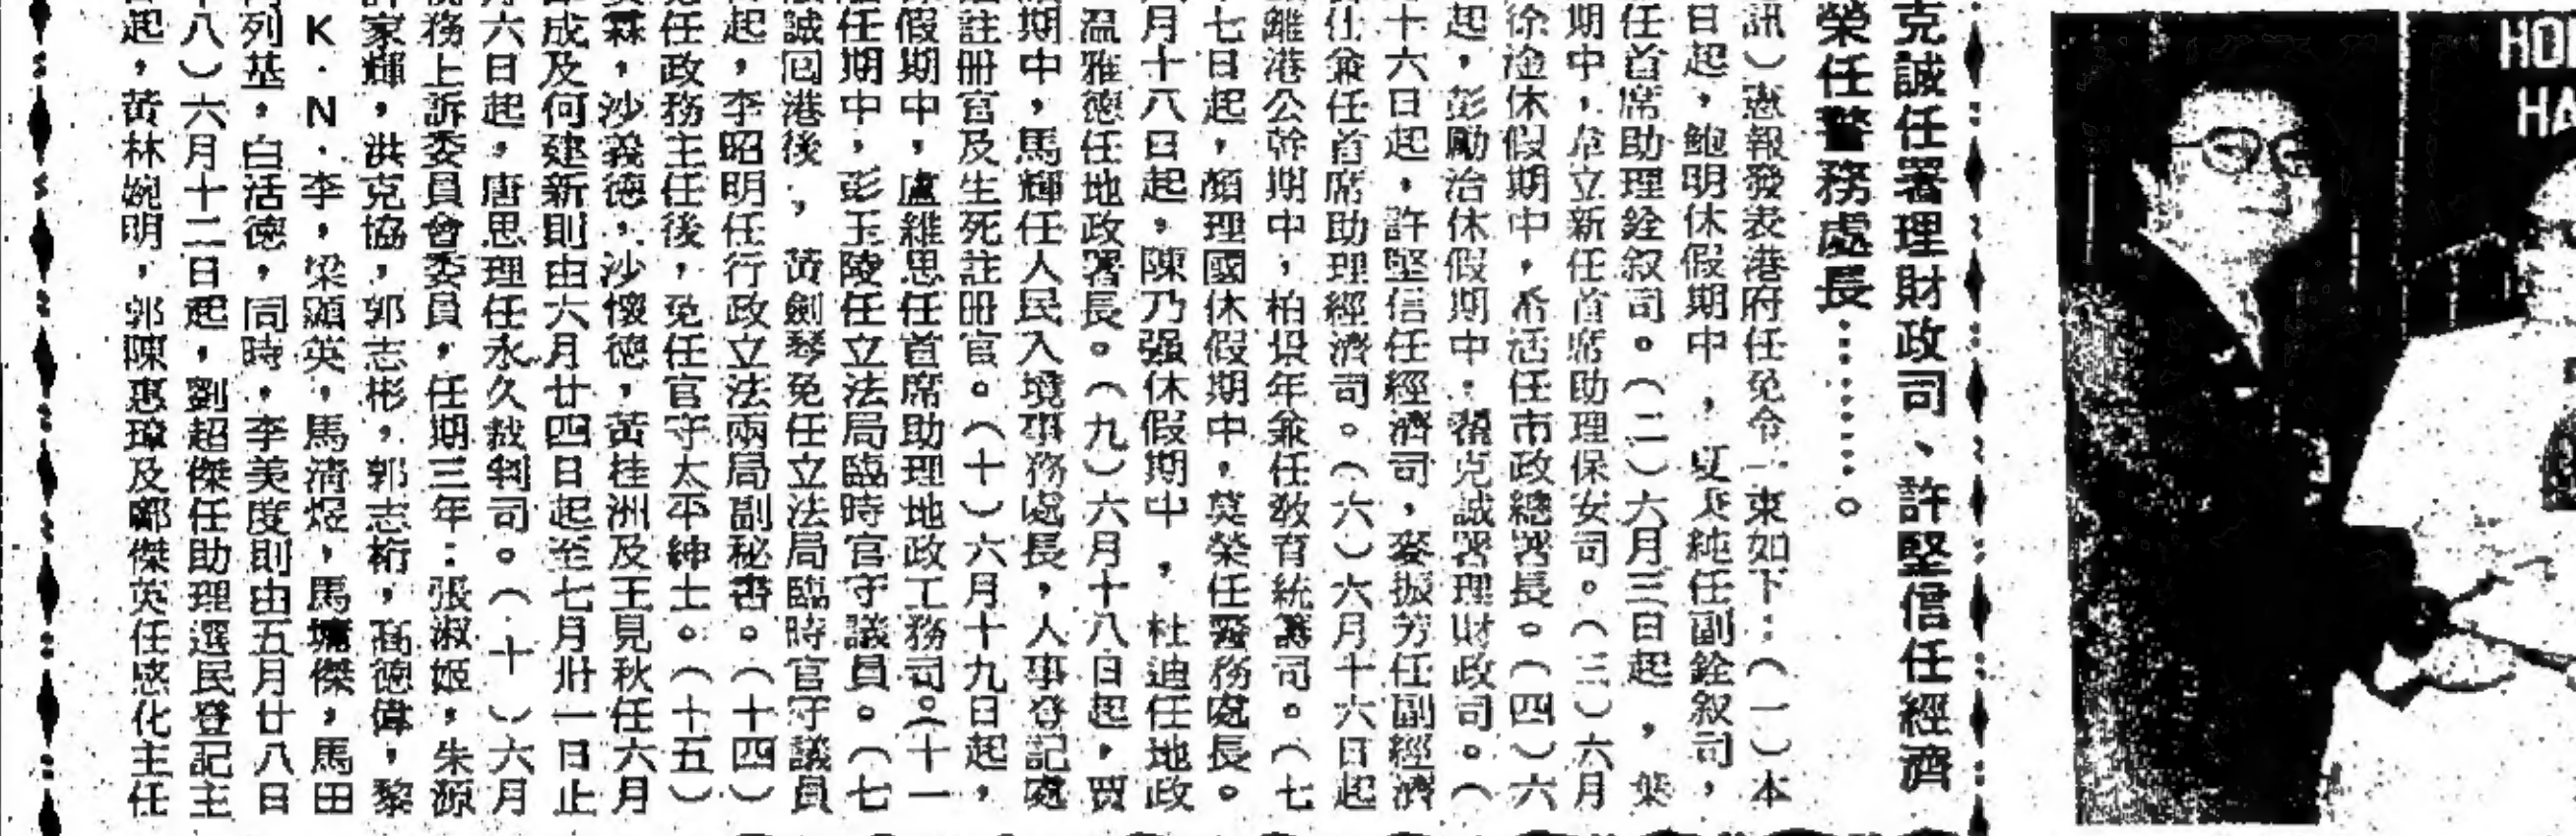 克誠任署理財政司、許堅信任經濟
榮任警務處長⋯⋯⋯。
訊）憲報發表港府任免令一束如下：（一）本
日起，鮑明休假期中，夏天純任副銓叙司，
任首席助理銓叙司。（二）六月三日起，葉
期中，卓立新任首席助理保安司。（三）六月
徐淦休假期中，希活任市政總署長。（四）六
起，彭勵治休假期中：翟克誠署理財政司。（
十六日起，許堅信任經濟司，麥振芳任副經濟
兼任首席助理經濟司。（六）六月十六日起
離港公幹期中，柏年兼任教育統籌司。（七
七日起，顏理國休假期中，莫榮任警務處長。
月十八日起，陳乃强休假期中，杜迪任地政
温雅德任地政署長。（九）六月十八日起，賈
期中，馬輝任人民入境事務處長，人事登記處
註册官及生死註册官。（十）六月十九日起，
假期中，盧維思任首席助理地政工務司。（十一
任期中，彭玉陵任立法局臨時官守議員。（七
誠回港後，黃劍琴免任立法局臨時官守議員
起，李昭明任行政立法兩局副秘書。（十四）
任政務主任後，免任官守太平紳士。（十五）
霖，沙義德，沙懷德，黃桂洲及王見秋任六月
成及何建新則由六月廿四日起至七月卅一日止
六日起，唐思理任永久裁判司。（十）六月
務上訴委員會委員，任期三年：張淑姬，朱源
許家輝，洪克協，郭志彬，郭志桁，高德偉，黎
K．N．李，梁顯英，馬清煜，馬墉傑，馬田
列基，白活德，同時，李美度則由五月廿八日
八）六月十二日起，劉超傑任助理選民登記主
起，黃林婉明，郭陳惠瑋及鄺傑英任感化主任
HO
HA